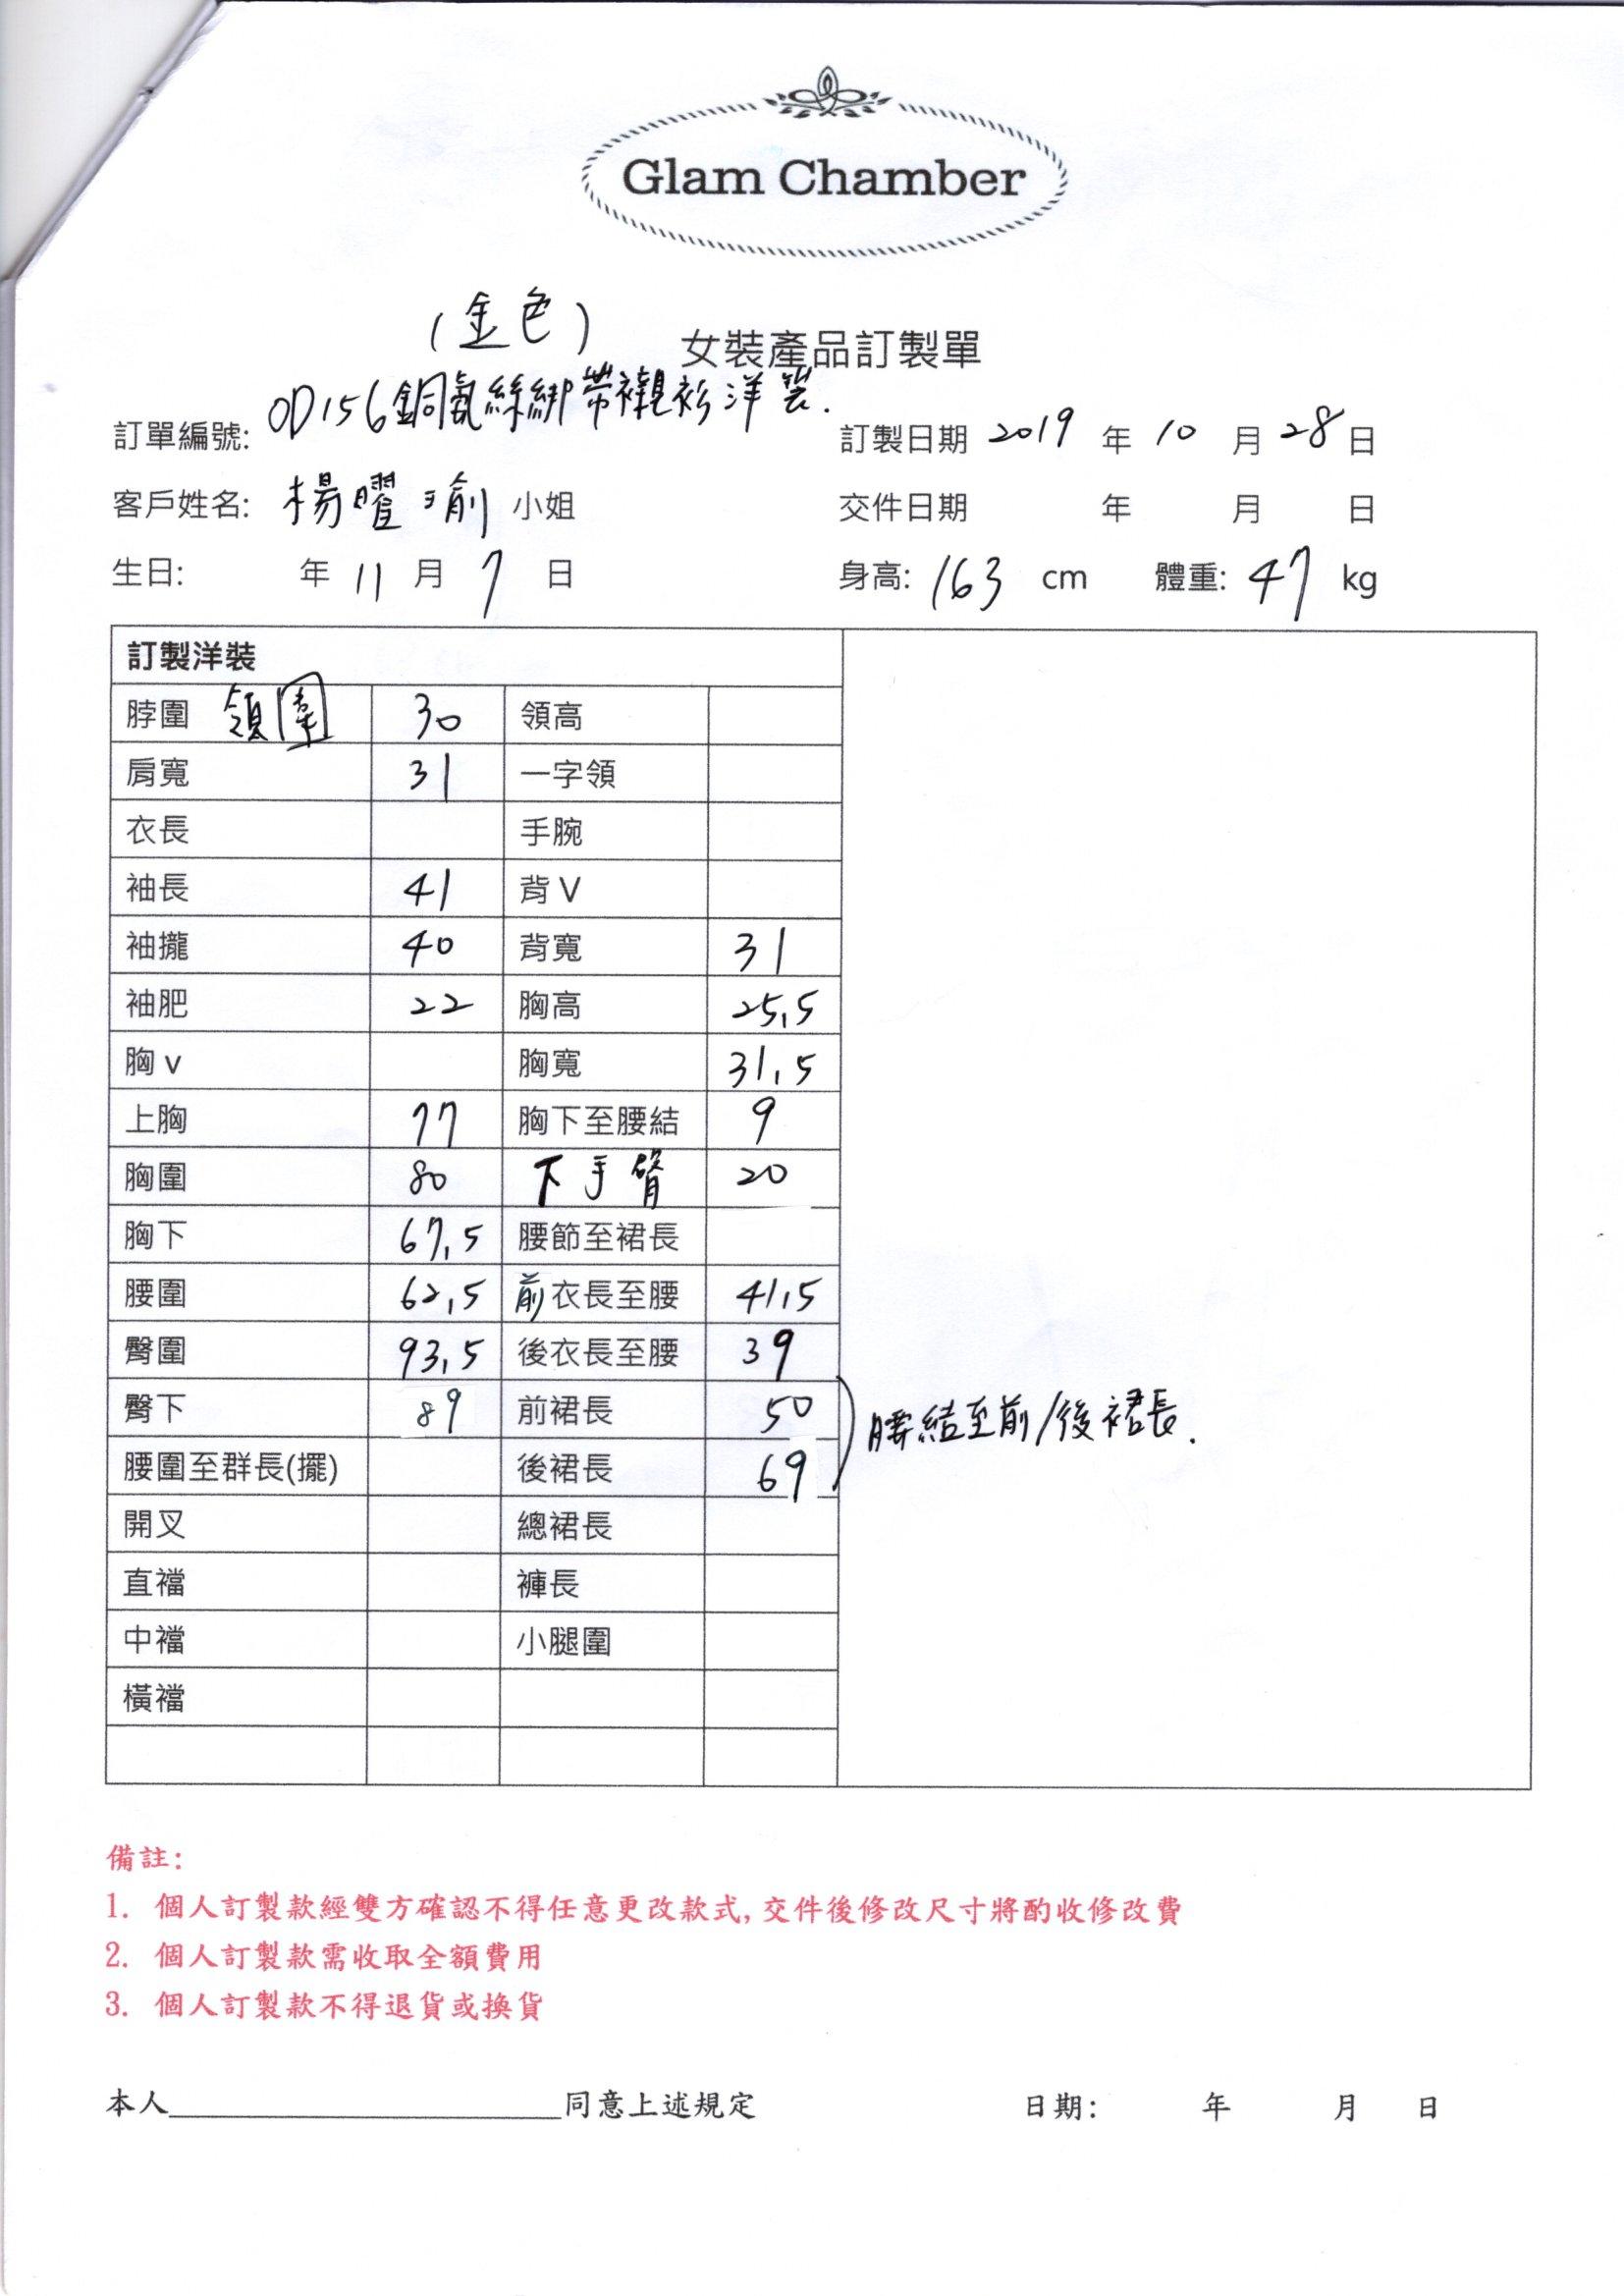 Glam Chamber
(金色)
女裝產品訂製單
訂單編號: OD156銅氨絲綁帶襯衫洋裝. 訂製日期 2019 年 10 月 28 日
客戶姓名: 楊曜瑜 小姐 交件日期 年 月 日
生日: 年 11 月 7 日 身高: 163 cm 體重: 47 kg
訂製洋裝
脖圍 領圍 30 領高
肩寬 31 一字領
衣長 手腕
袖長 41 背V
袖攏 40 背寬 31
袖肥 22 胸高 25.5
胸v 胸寬 31.5
上胸 77 胸下至腰結 9
胸圍 80 下手臂 20
胸下 67.5 腰節至裙長
腰圍 62.5 前衣長至腰 41.5
臀圍 93.5 後衣長至腰 39
臀下 89 前裙長 50
腰結至前/後裙長.
腰圍至群長(擺) 後裙長 69
開叉 總裙長
直襠 褲長
中襠 小腿圍
橫襠
備註:
1. 個人訂製款經雙方確認不得任意更改款式,交件後修改尺寸將酌收修改費
2. 個人訂製款需收取全額費用
3. 個人訂製款不得退貨或換貨
本人____________________同意上述規定 日期: 年 月 日